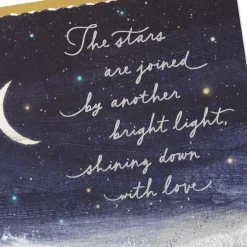 The stars
are joined
by another
bright light,
shining down
with love.